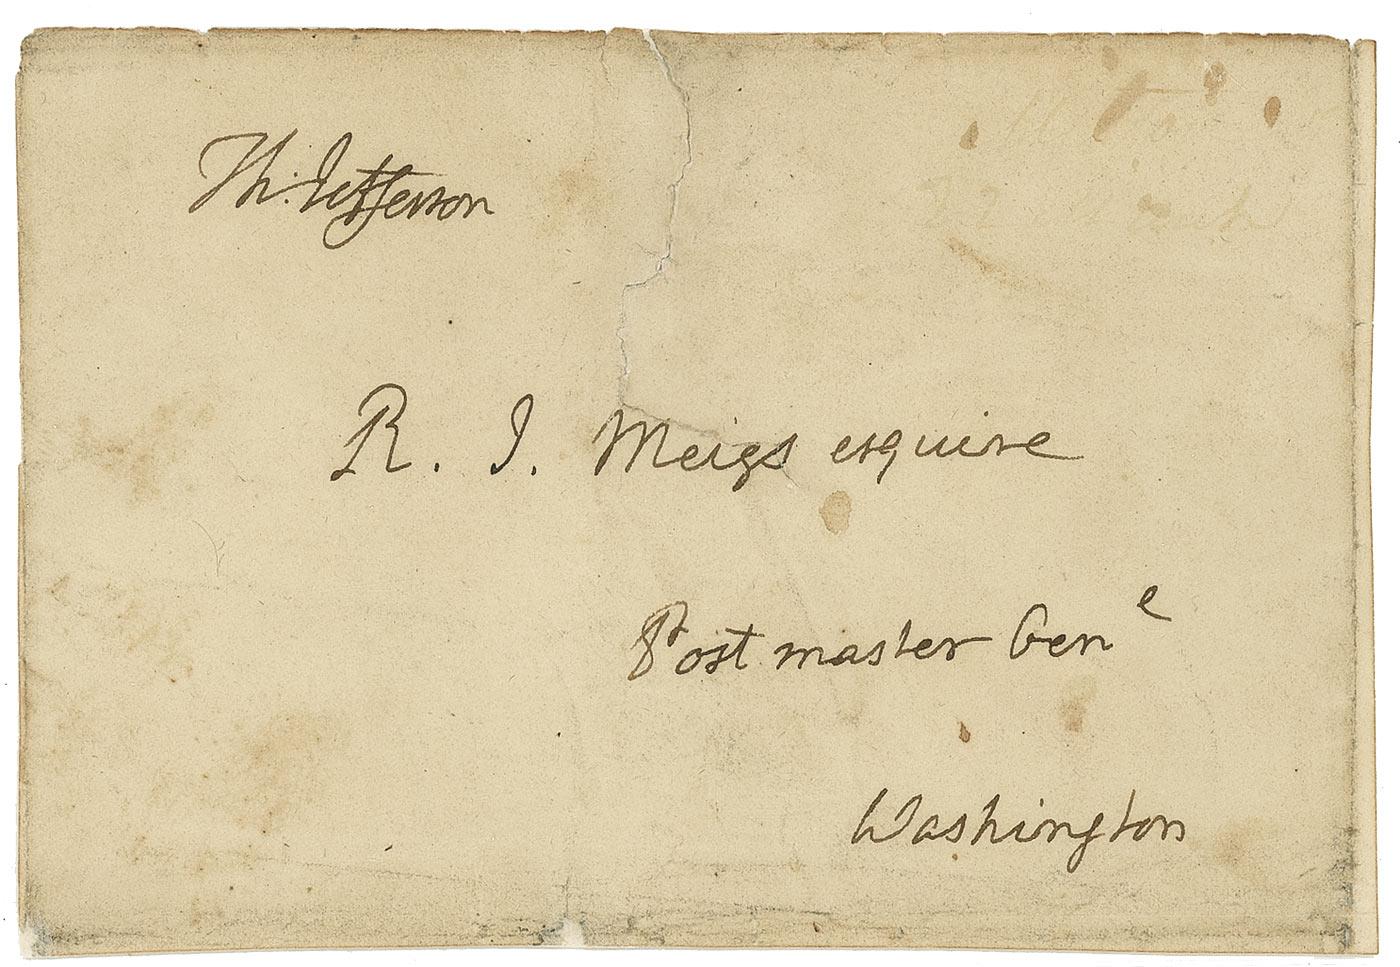 Th: Jefferson
R. J. Meigs esquire
Post master Gen^e
Washington